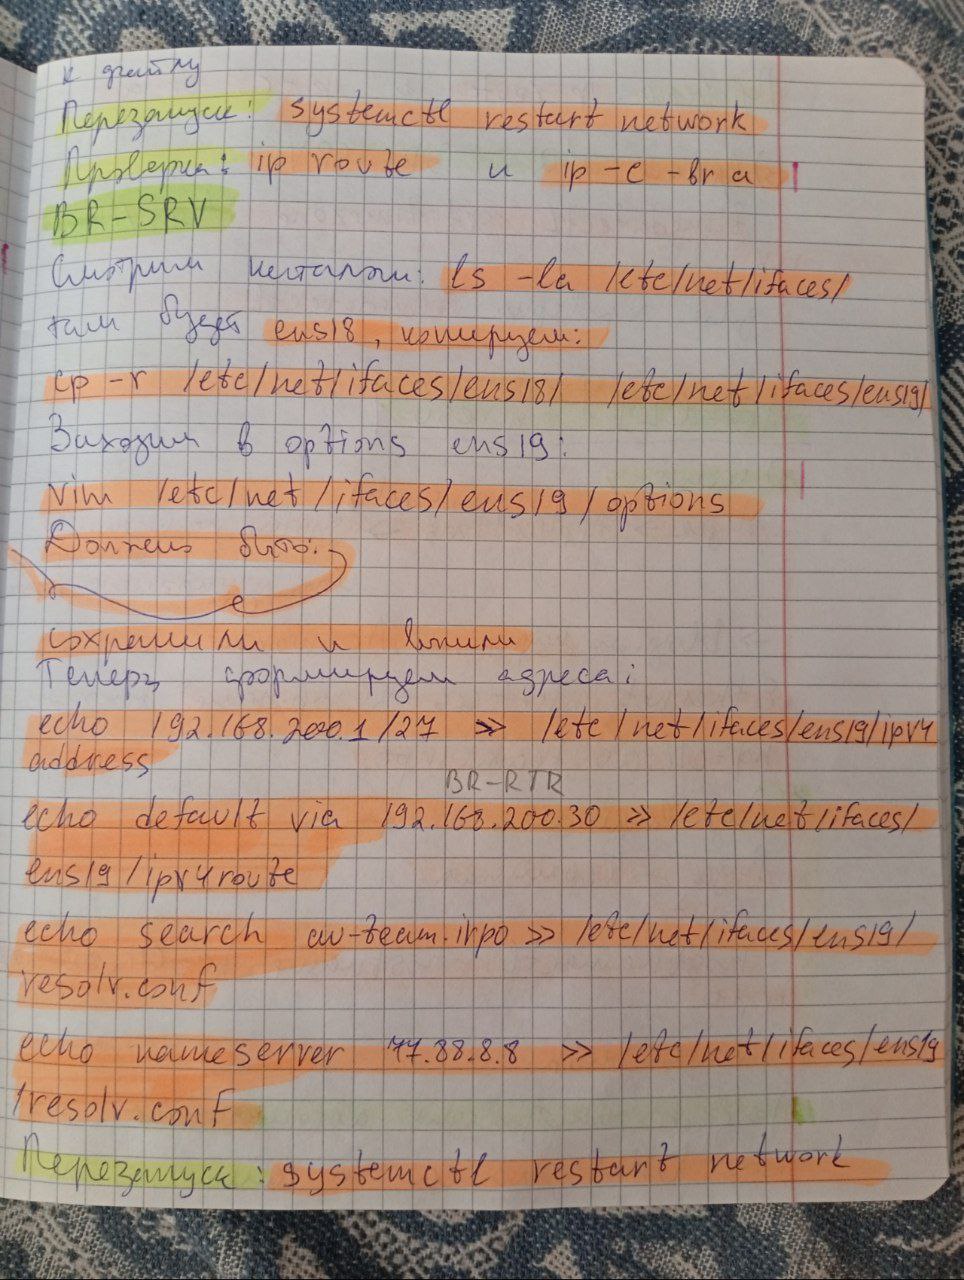 к файлу
Перезапуск: systemctl restart network
Проверка: ip route и ip -c -br a
BR-SRV
Смотрим каталоги: ls -la /etc/net/ifaces/
там будет ens18, копируем:
cp -r /etc/net/ifaces/ens18/ /etc/net/ifaces/ens19/
Заходим в options ens19:
vim /etc/net/ifaces/ens19/options
Должно быть:
сохранили и вышли
Теперь формируем адреса:
echo 192.168.200.1/27 >> /etc/net/ifaces/ens19/ipv4
address
BR-RTR
echo default via 192.168.200.30 >> /etc/net/ifaces/
ens19/ipv4route
echo search au-team.irpo >> /etc/net/ifaces/ens19/
resolv.conf
echo nameserver 77.88.8.8 >> /etc/net/ifaces/ens19
/resolv.conf
Перезапуск: systemctl restart network